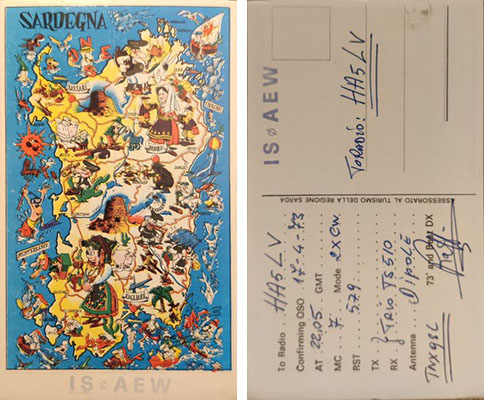 SARDEGNA
SASSARI
NUORO
ORISTANO
CAGLIARI
MEDITERRANEO
ISøAEW
ISøAEW
To RADIO: HA5LV
ASSESSORATO AL TURISMO DELLA REGIONE SARDA
To Radio HA5LV
Confirming QSO 17-4-73
AT 22,05 GMT
MC 7 Mode 2XCW
RST 579
TX } TRIO TS510
RX
Antenna Dipole
73' and Best DX
TNX QSL